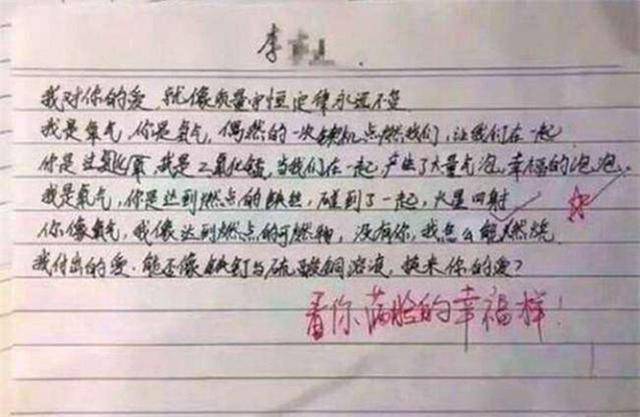 李
我对你的爱，就像质量守恒定律永远不变
我是氧气，你是氢气，偶然的一次契机点燃我们，让我们在一起
你是过氧化氢，我是二氧化锰，当我们在一起，产生了大量气泡，幸福的泡泡。
我是氧气，你是达到燃点的铁丝，碰到了一起，火星四射
你像氧气，我像达到燃点的可燃物，没有你，我怎么能燃烧
我付出的爱，能否像铁钉与硫酸铜溶液，换来你的爱？
看你满脸的幸福样！